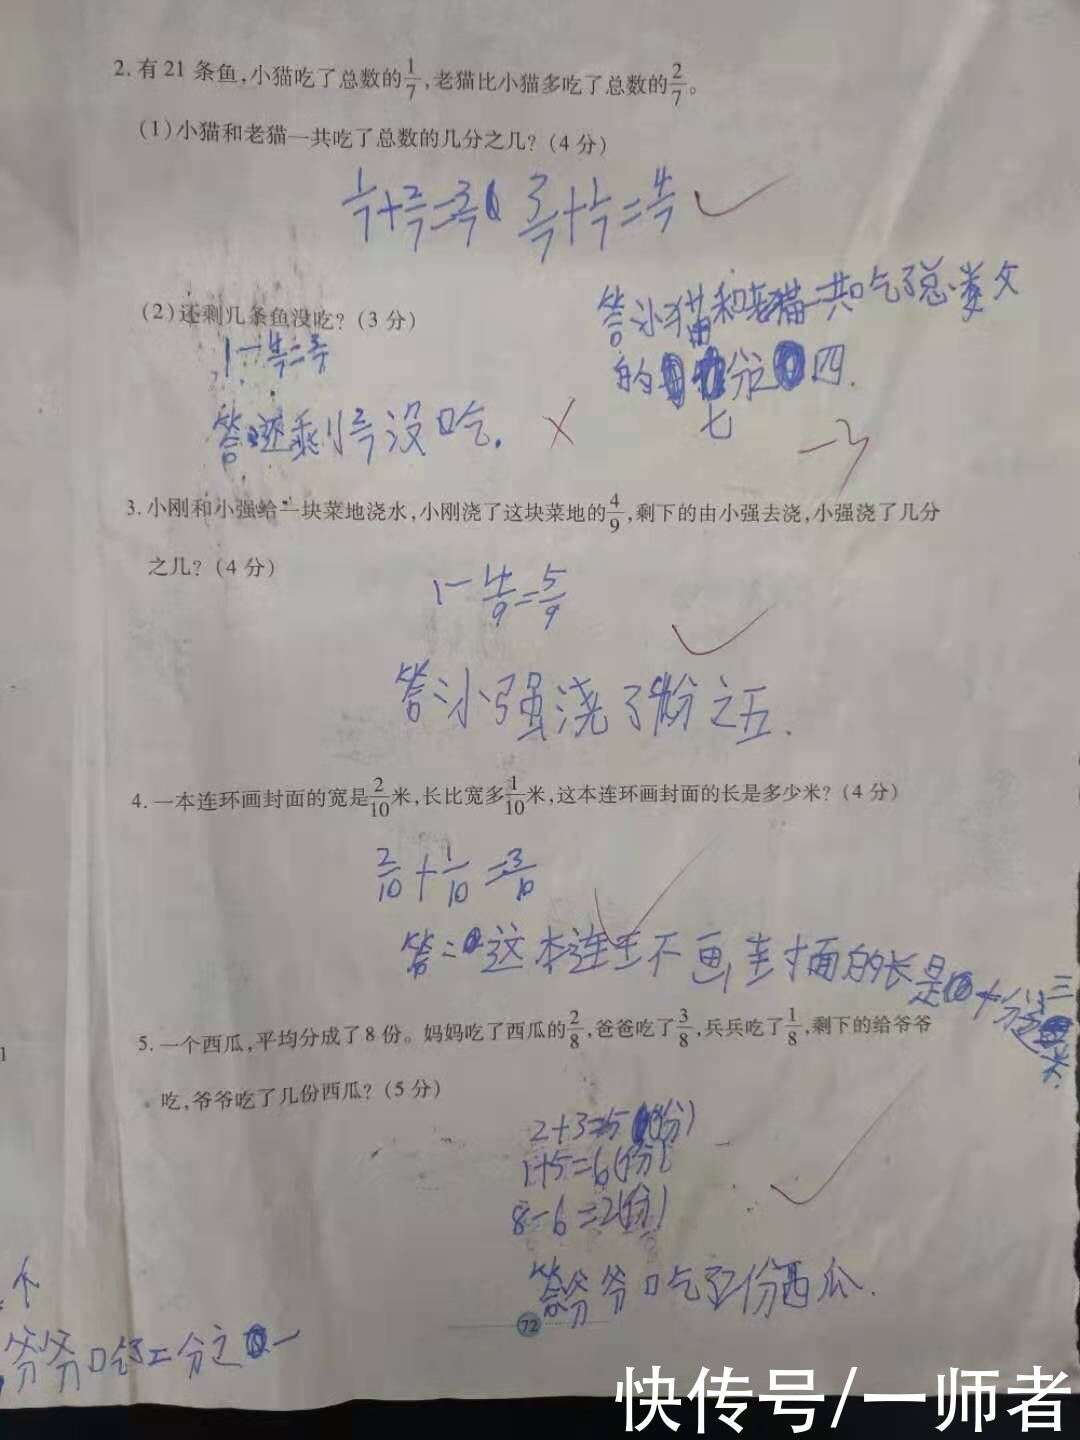 2. 有 21 条鱼,小猫吃了总数的1/7,老猫比小猫多吃了总数的2/7。
(1) 小猫和老猫一共吃了总数的几分之几? (4 分)
1/7+2/7=3/7 3/7+1/7=4/7
(2) 还剩几条鱼没吃? (3 分)
1-4/7=3/7
答:小猫和老猫一共吃了总数
的 分之 四.
七
答:还剩 没吃.
-3
3. 小刚和小强给一块菜地浇水,小刚浇了这块菜地的4/9,剩下的由小强去浇,小强浇了几分
之几? (4 分)
1-4/9=5/9
答:小强浇了 分之五.
4. 一本连环画封面的宽是2/10米,长比宽多1/10米,这本连环画封面的长是多少米? (4 分)
2/10+1/10=3/10
答:这本连环画封面的长是十分之三米.
5. 一个西瓜,平均分成了 8 份。妈妈吃了西瓜的2/8,爸爸吃了3/8,兵兵吃了1/8,剩下的给爷爷
吃,爷爷吃了几份西瓜? (5 分)
2+3=5(份)
1+5=6(份)
8-6=2(份)
答:爷爷吃了2份西瓜.
个
爷爷吃了二分之一
72
快传号/一师者